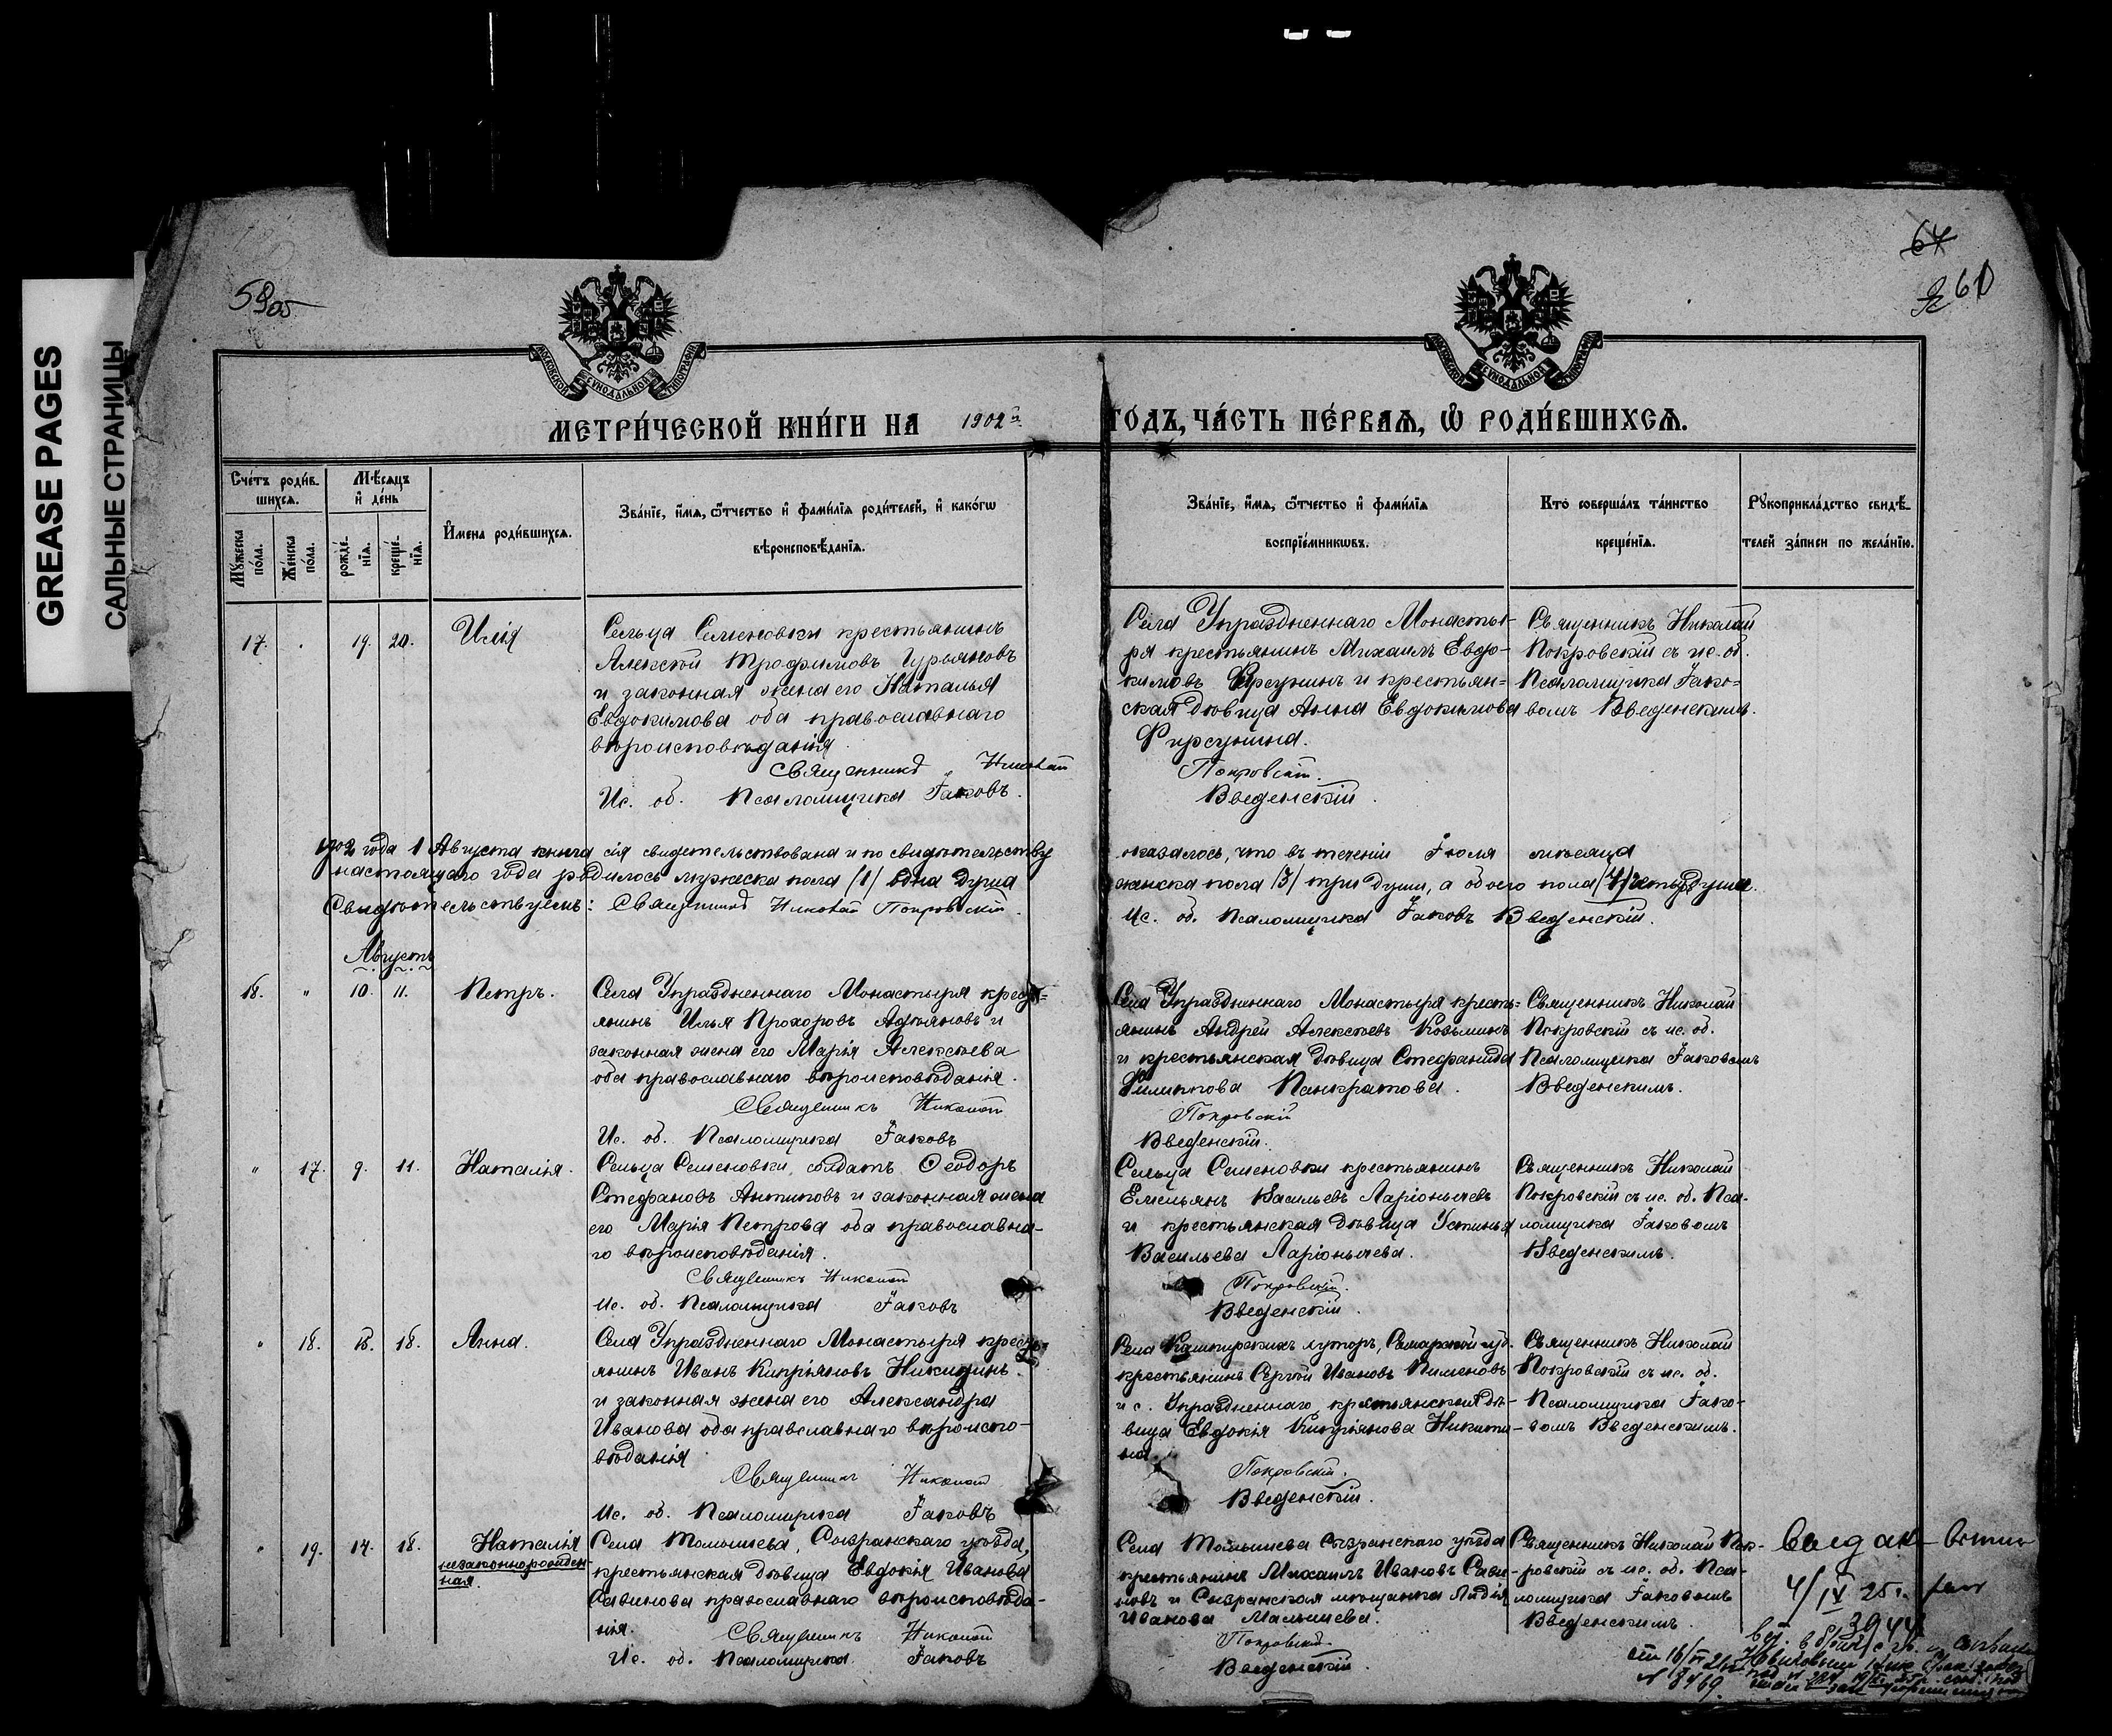 GREASE PAGES
САЛЬНЫЕ СТРАНИЦЫ
59об
64
60
МОСКОВСКОЙ СѴНОДАЛЬНОЙ ТИПОГРАФІИ
МОСКОВСКОЙ СѴНОДАЛЬНОЙ ТИПОГРАФІИ
МЕТРИ́ЧЕСКОЙ КНИ́ГИ НА 1902й ГО́ДЪ, ЧА́СТЬ ПЕ́РВАѦ, Ѡ҆ РОДИ́ВШИХСѦ.
Сче́тъ роди́в-
шихсѧ.
Мꙋ́жеска по́ла.
Же́нска по́ла.
Мѣ́сѧцъ и҆ де́нь
рожде́-
нїѧ.
креще́-
нїѧ.
И҆мена̀ роди́вшихсѧ.
Зва́нїе, и҆́мѧ, ѻ҆́тчество и҆ фами́лїѧ роди́телей, и҆ како́гѡ
вѣроисповѣ́данїѧ.
Зва́нїе, и҆́мѧ, ѻ҆́тчество и҆ фами́лїѧ
воспрїе́мникѡвъ.
Кто̀ соверша́лъ та́инство
креще́нїѧ.
Рꙋкоприкла́дство свидѣ́-
телей за́писи по жела́нїю.
17. 19. 20. Илія
Сельца Семеновки крестьянинъ
Алексѣй Трофимовъ Гурьяновъ
и законная жена его Наталья
Евдокимова оба православнаго
вѣроисповѣданія.
Священникъ Николай Покровскій.
Ис. об. Псаломщика Іаковъ Введенскій.
Села Упраздненнаго Монасты-
ря крестьянинъ Михаилъ Евдо-
кимовъ Фирсунинъ и крестьян-
ская дѣвица Анна Евдокимова
Фирсунина.
Священникъ Николай
Покровскій съ ис. об.
Псаломщика Іако-
вомъ Введенскимъ.
1902 года 1 Августа книга сія свидѣтельствована и по свидѣтельству оказалось, что въ теченіи Іюля мѣсяца
настоящаго года родилось мужеска пола /1/ одна душа женска пола /3/ три души, а обоего пола /4/ четыре души.
Свидѣтельствуемъ: Священникъ Николай Покровскій. Ис. об. Псаломщика Іаковъ Введенскій.
Августъ
18. " 10. 11. Петръ.
Села Упраздненнаго Монастыря кресть-
янинъ Илья Прохоровъ Афонинъ и
законная жена его Марія Алексѣева
оба православнаго вѣроисповѣданія.
Священникъ Николай Покровскій
Ис. об. Псаломщика Іаковъ Введенскій.
Села Упраздненнаго Монастыря кресть-
янинъ Андрей Алексѣевъ Козьминъ
и крестьянская дѣвица Стефанида
Филиппова Панкратова.
Священникъ Николай
Покровскій съ ис. об.
Псаломщика Іаковомъ
Введенскимъ.
" 17. 9. 11. Наталія.
Сельца Семеновки, солдатъ Ѳеодоръ
Стефановъ Антиповъ и законная жена
его Марія Петрова оба православна-
го вѣроисповѣданія.
Священникъ Николай Покровскій.
Ис. об. Псаломщика Іаковъ Введенскій.
Сельца Семеновки крестьянинъ
Емельянъ Васильевъ Ларіонычевъ
и крестьянская дѣвица Устинья
Васильева Ларіонычева.
Священникъ Николай
Покровскій съ ис. об. Пса-
ломщика Іаковомъ
Введенскимъ.
" 18. 18. Анна.
Села Упраздненнаго Монастыря кресть-
янинъ Иванъ Кипріяновъ Никитинъ
и законная жена его Александра
Иванова оба православнаго вѣроиспо-
вѣданія
Священникъ Николай Покровскій.
Ис. об. Псаломщика Іаковъ Введенскій.
Села хуторъ, Самарской губ.
крестьянинъ Сергѣй Ивановъ Пименовъ
и с. Упраздненнаго, крестьянская дѣ-
вица Евдокія Кипріянова Никити-
на.
Священникъ Николай
Покровскій съ ис. об.
Псаломщика Іако-
вомъ Введенскимъ.
" 19. 14. 18. Наталія
незаконнорожден-
ная.
Села Томышева, Сызранскаго уѣзда,
крестьянская дѣвица Евдокія Иванова
Савинова православнаго вѣроисповѣда-
нія.
Священникъ Николай Покровскій.
Ис. об. Псаломщика Іаковъ Введенскій.
Села Томышева Сызранскаго уѣзда
крестьянинъ Михаилъ Ивановъ Сави-
новъ и Сызранская мѣщанка Лидія
Иванова Малышева.
Священникъ Николай Пок-
ровскій съ ис. об. Пса-
ломщика Іаковомъ
Введенскимъ.
4/IV 25г.
3944